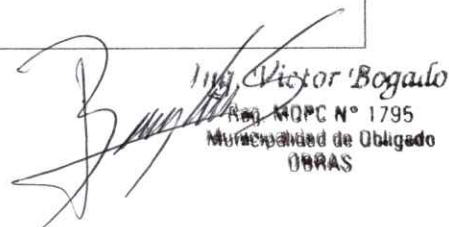 Ing. Victor Bogado
Reg. MOPC N° 1795
Municipalidad de Obligado
OBRAS